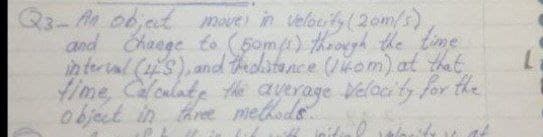 Q3- An object moves in velocity (20m/s)
and Change to (50m/s) through the time
interval (4S), and the distance (140m) at that
time, Calculate the average velocity for the
object in three methods.